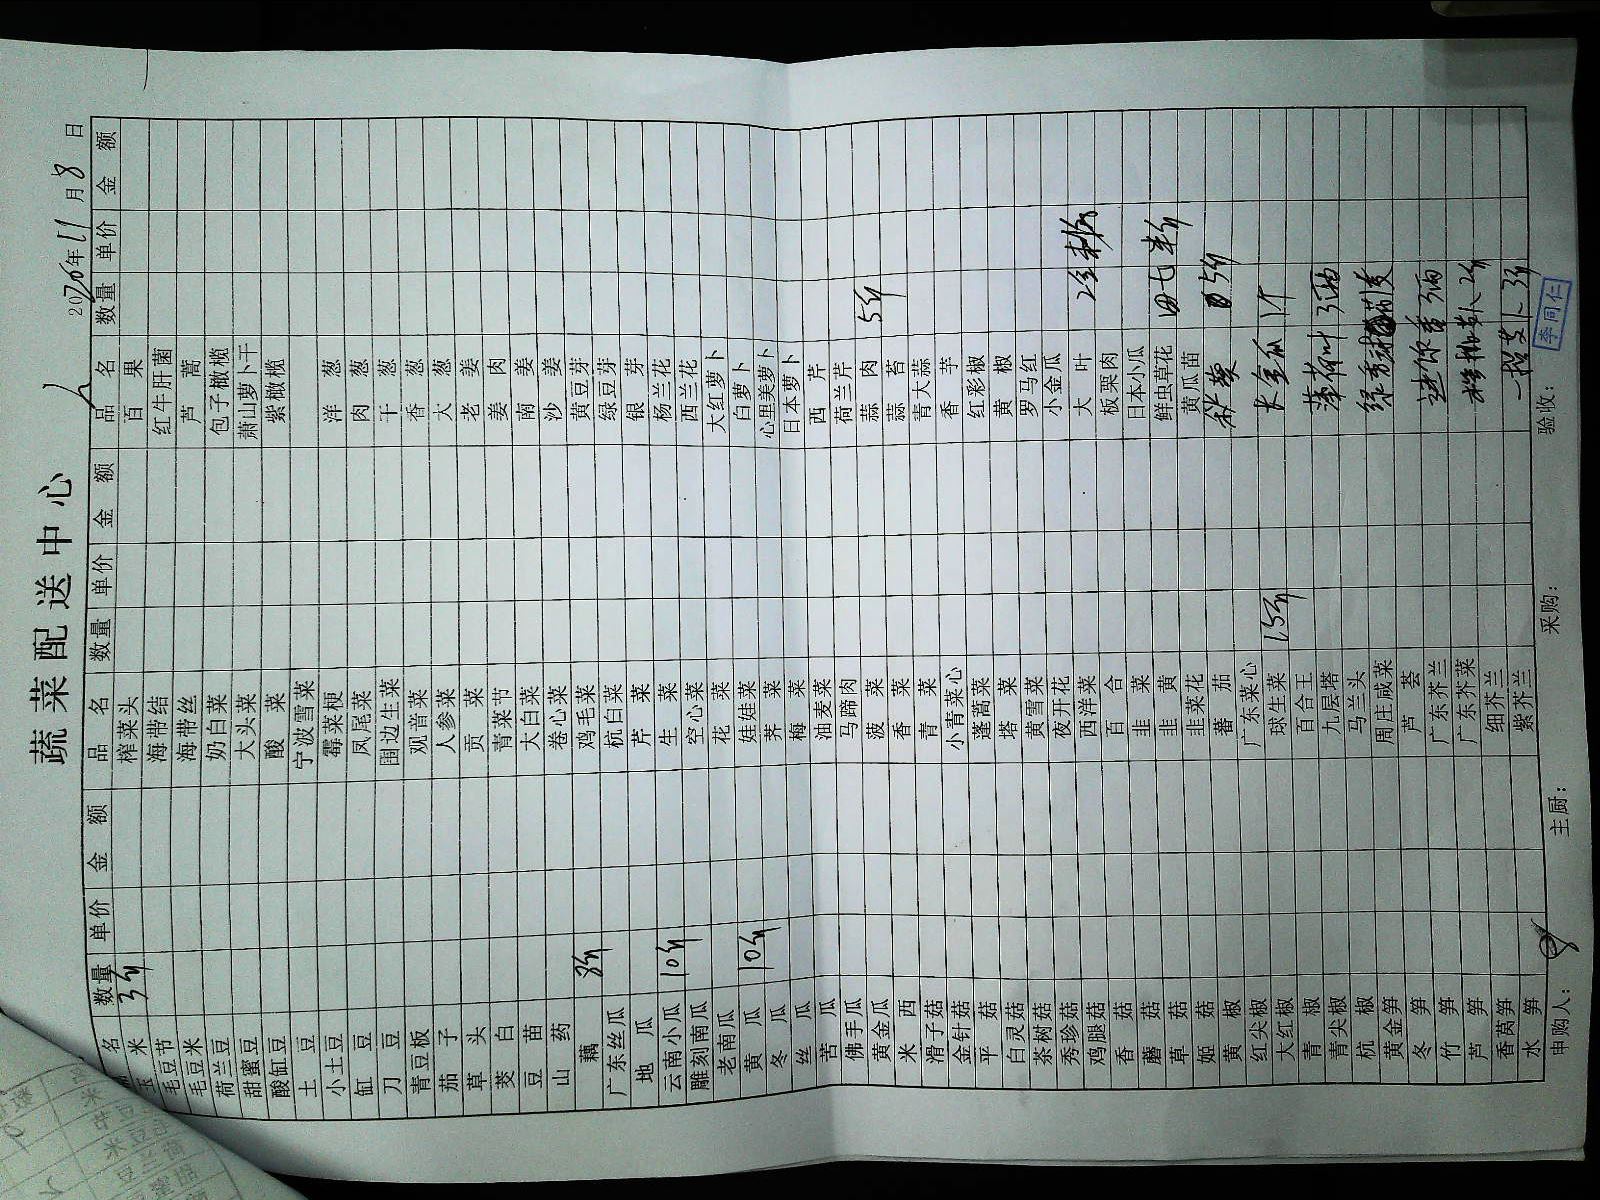 蔬菜配送中心
年11月8日
名 数量 单价 金额 品名 数量 单价 金额 品名 数量 单价 金额
米 3斤 榨菜头 百果
毛豆节 海带结 红牛肝菌
毛豆米 海带丝 芦蒿
荷兰豆 奶白菜 包子橄榄
甜蜜豆 大头菜 萧山萝卜干
酸缸豆 酸菜 紫橄榄
土豆 宁波雪菜
小土豆 霉菜梗 洋葱
缸豆 凤尾菜 肉葱
刀豆 围边生菜 干葱
青豆板 观音菜 香葱
茄子 人参菜 大葱
草头 贡菜 老姜
茭白 青菜节 姜肉
豆苗 大白菜 南姜
山药 卷心菜 沙姜
藕 8斤 鸡毛菜 黄豆芽
广东丝瓜 杭白菜 绿豆芽
地瓜 芹菜 银芽
云南小瓜 10斤 生菜 杨兰花
雕刻南瓜 空心菜 西兰花
老南瓜 花菜 大红萝卜
黄瓜 10斤 娃娃菜 白萝卜
冬瓜 荠菜 心里美萝卜
丝瓜 梅菜 日本萝卜
苦瓜 油麦菜 西芹
佛手瓜 马蹄肉 荷兰芹
黄金瓜 菠菜 蒜肉 5斤
米西 香菜 蒜苔
滑子菇 青菜 青大蒜
金针菇 小青菜心 香芋
平菇 蓬蒿菜 红彩椒
白灵菇 塔菜 黄椒
茶树菇 黄雪菜 罗马红
秀珍菇 夜开花 小金瓜
鸡腿菇 西洋菜 大叶
香菇 百合 板栗肉
蘑菇 韭菜 日本小瓜
草菇 韭黄 鲜虫草花
姬菇 韭菜花 黄瓜苗
黄椒 蕃茄 5斤
红尖椒 广东菜心
大红椒 球生菜 15斤
青椒 百合王
青尖椒 九层塔 薄荷叶 3两
杭椒 马兰头
黄金笋 周庄咸菜
冬笋 芦荟 迷你香 3两
竹笋 广东芥兰
芦笋 广东芥菜
香莴笋 细芥兰
水笋 紫芥兰 3斤
申购人： 主厨： 采购： 验收： 李同仁